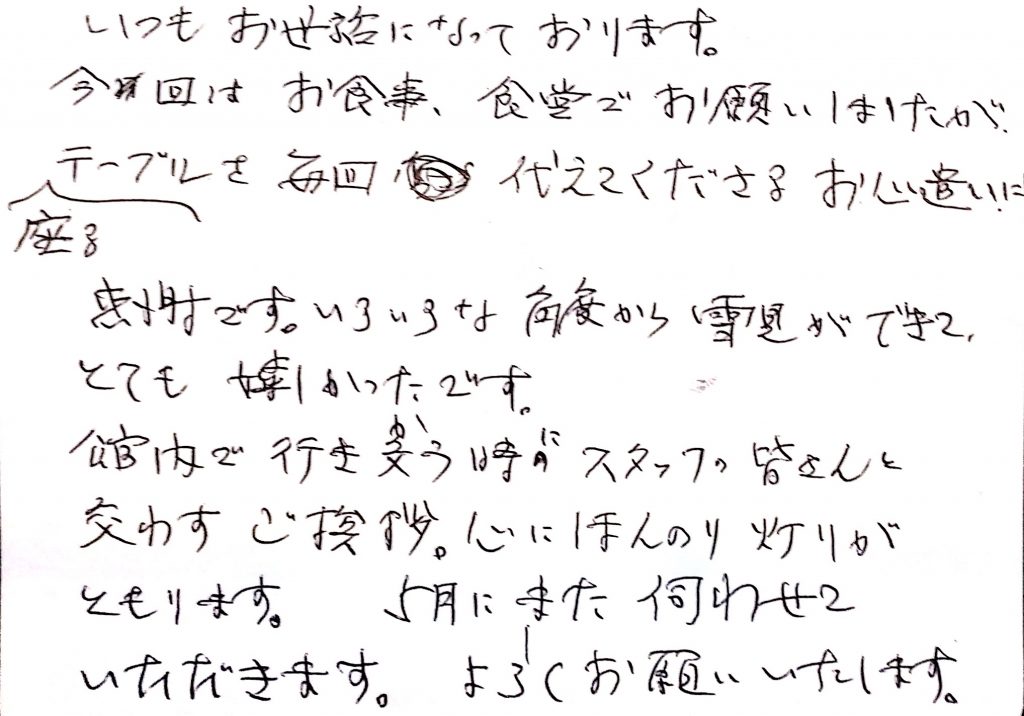 いつもお世話になっております。
今回はお食事、食堂でお願いしましたが、
テーブルを毎回代えてくださるお心遣いに
座る
感謝です。いろいろな角度から雪見ができて、
とても嬉しかったです。
館内で行き交う時にスタッフの皆さんと
か
交わすご挨拶。心にほんのり灯りが
ともります。 5月にまた伺わせて
いただきます。 よろしくお願いいたします。